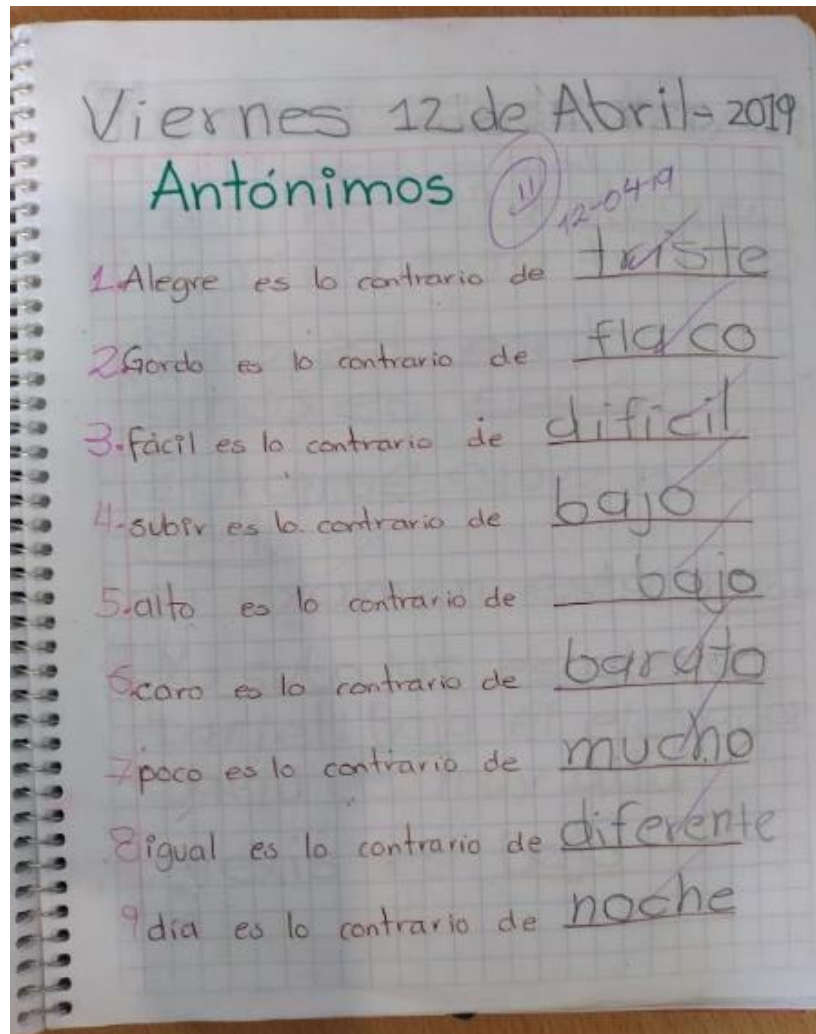 Viernes 12 de Abril-2019
Antónimos 11 12-04-19
1.Alegre es lo contrario de triste
2.Gordo es lo contrario de flaco
3.fácil es lo contrario de dificil
4-subir es lo contrario de bajo
5.alto es lo contrario de bajo
6.caro es lo contrario de barato
7 poco es lo contrario de mucho
8 igual es lo contrario de diferente
9 dia es lo contrario de noche